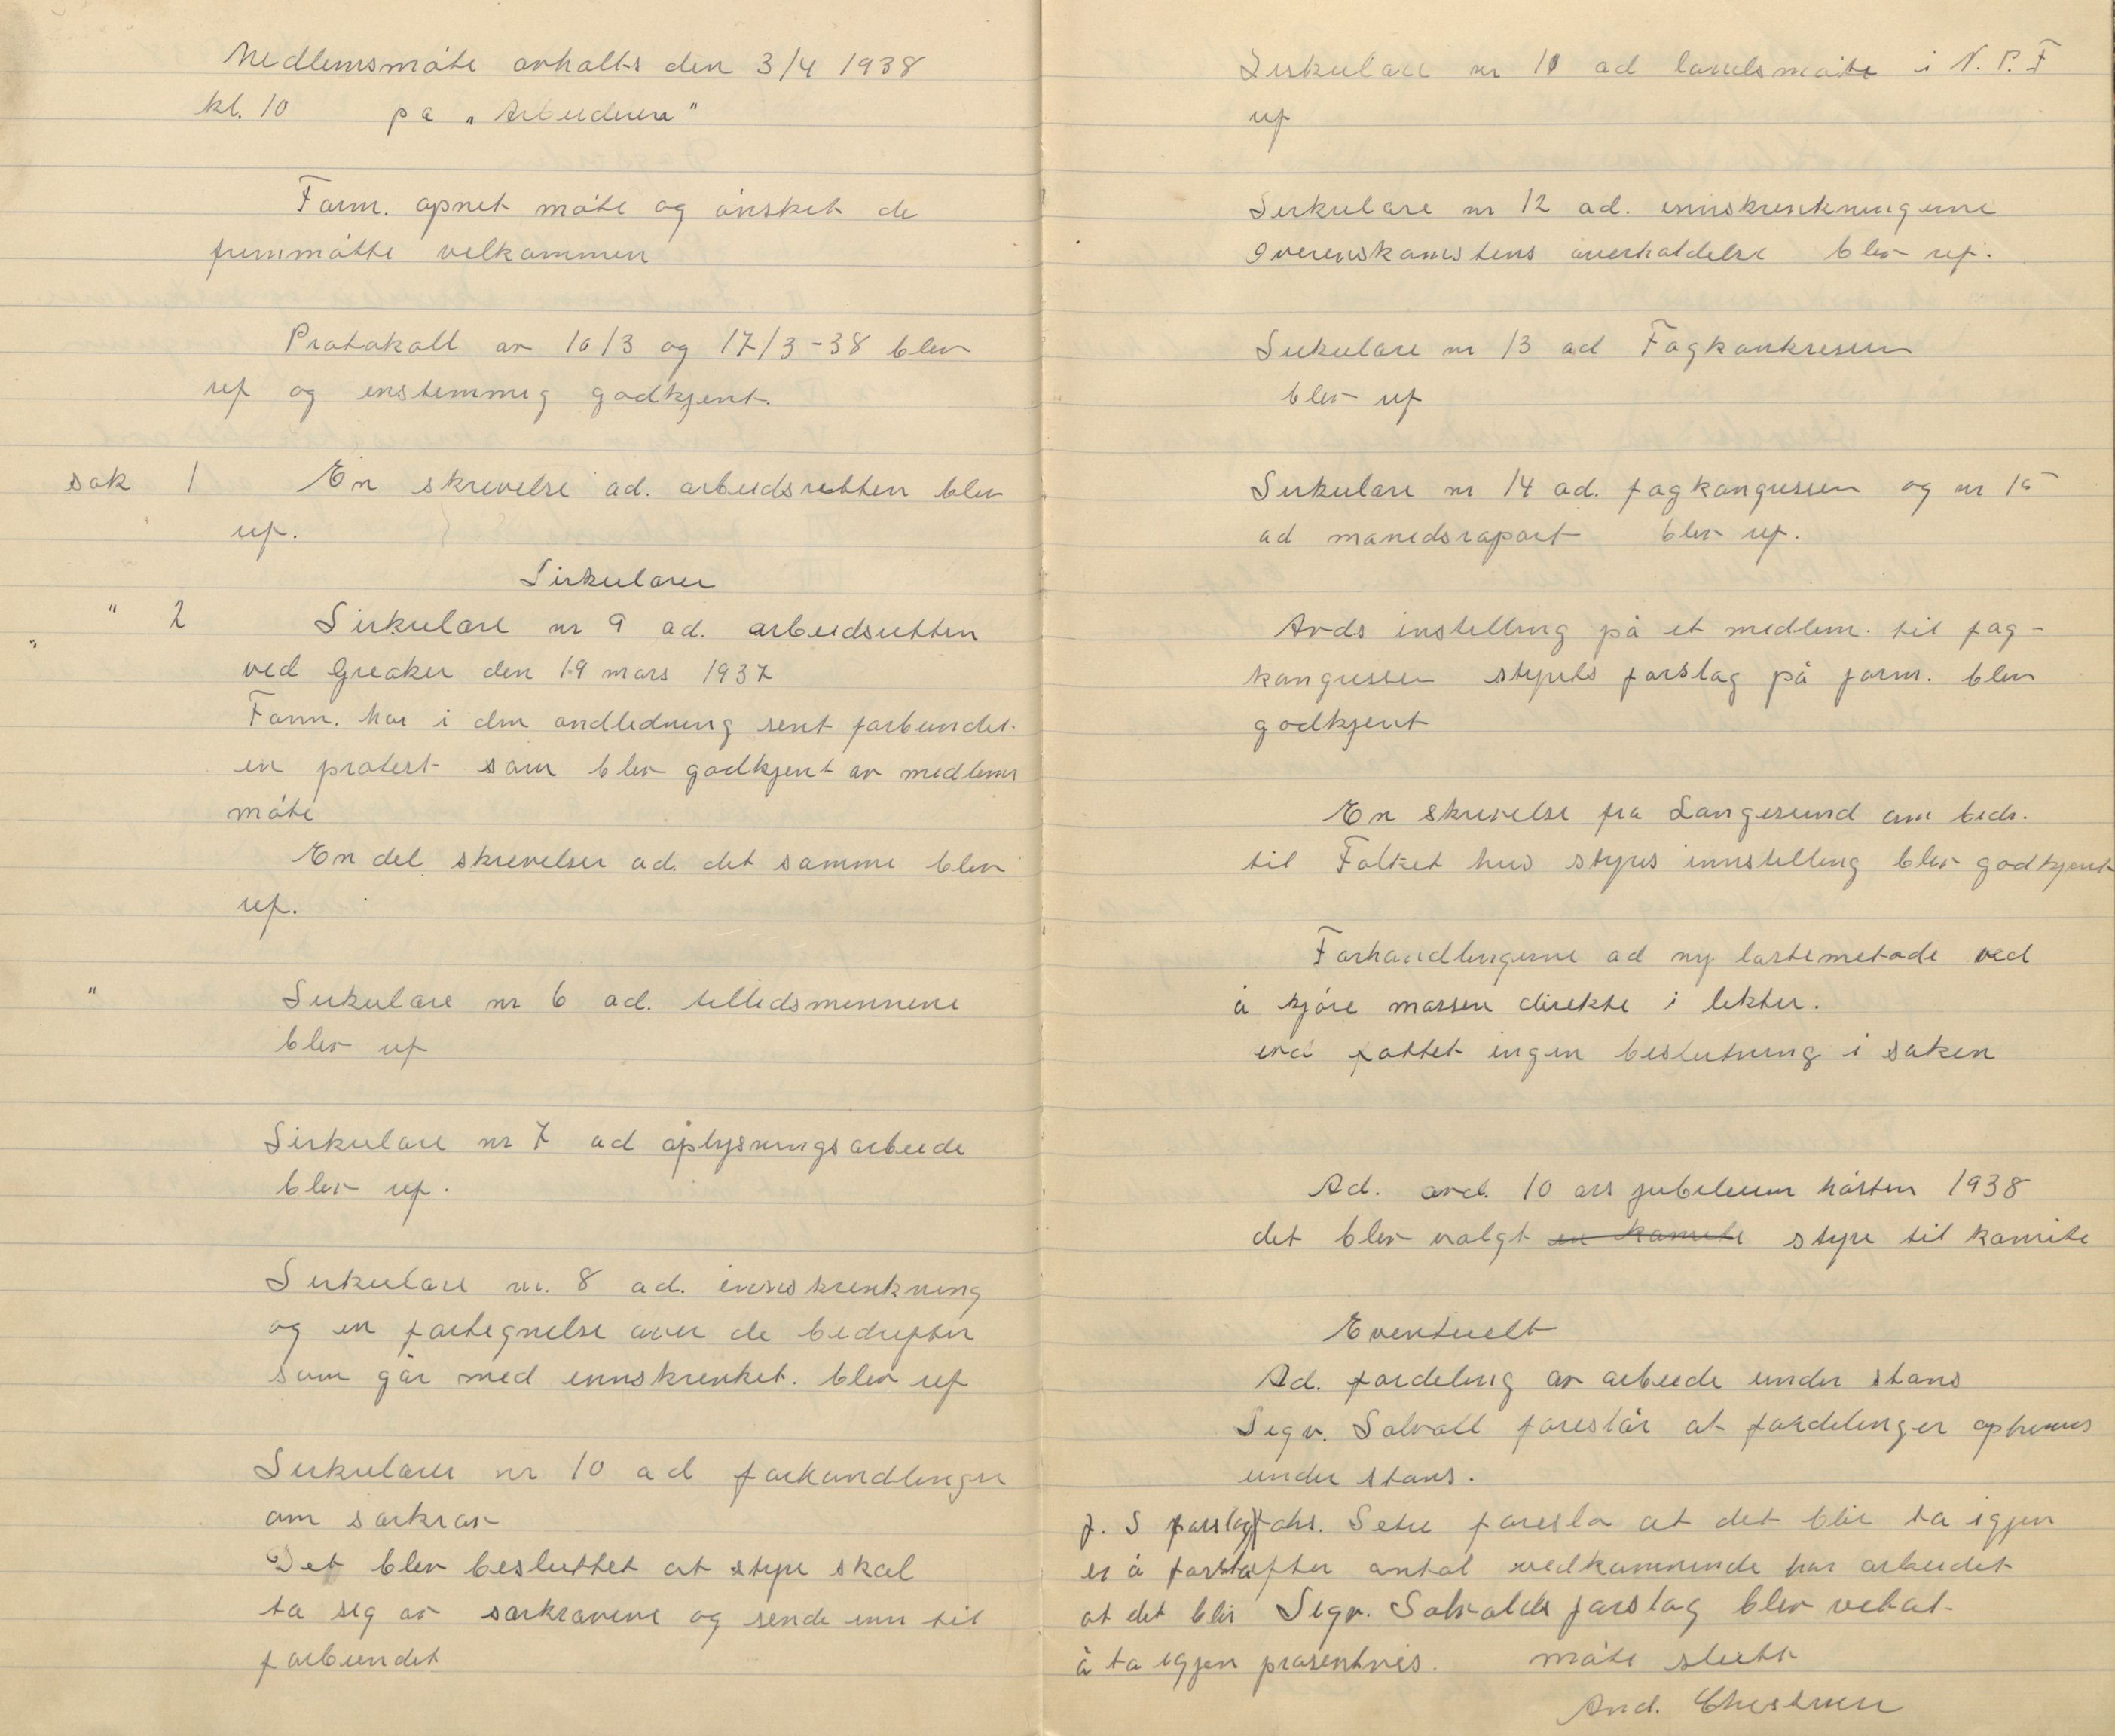 Medlemsmøte avholts den 3/4 1938
kl. 10 på „Arbeideren"
Form. åpnet møte og ønsket de
fremmøtte velkommen
Protokoll av 10/3 og 17/3-38 blev
ref og enstemmig godkjent.
sak 1 En skrivelse ad. arbeidsretten blev
ref.
Sirkulærer
" 2 Sirkulære nr 9 ad. arbeidsretten
ved Greåker den 19 mars 1937
Form. har i den andledning sent forbundet.
en protest som blev godkjent av medlems
møte
En del skrivelser ad. det samme blev
ref.
" Sirkulære nr 6 ad. tillidsmennene
blev ref
Sirkulære nr 7 ad oplysningsarbeide
blev ref.
Sirkulære nr. 8 ad. innskrenkning
og en fortegnelse over de bedrifter
som går med innskrenket. blev ref
Sirkulærer nr 10 ad forhandlinger
om særkrav
Det blev besluttet at styre skal
ta seg av særkravene og sende inn til
forbundet
Sirkulære nr 11 ad landsmøte i N.P.F
ref
Sirkulære nr 12 ad. innskrenkningene
Overenskomstens overholdelse blev ref.
Sirkulære nr 13 ad Fagkonkresen
blev ref
Sirkulære nr 14 ad. fagkongressen og nr 15
ad månedsraport blev ref.
Avds instelling på et medlem. til fag-
kongressen styrets forslag på form. blev
godkjent
En skrivelse fra Langesund om bidr.
til Folket hus styres innstilling blev godkjent
Forhandlingene ad ny lastemetode ved
å kjøre massen direkte i lekter.
fattet ingen beslutning i saken
Ad. avd. 10 års jubileum høsten 1938
det blev valgt en komite styre til komite
Eventuelt
Ad. fordeling av arbeide under stans
Sigv. Solvoll foreslår at fordelinger opheves
under stans.
J. S forslag Johs. Setre foreslo at det blir ta igjen
er å forstå efter antal vedkommende har arbeidet
at det blir Sigv. Solvolds forslag blev vetat
å ta igjen prosentvis. møte slutt
And. Christensen